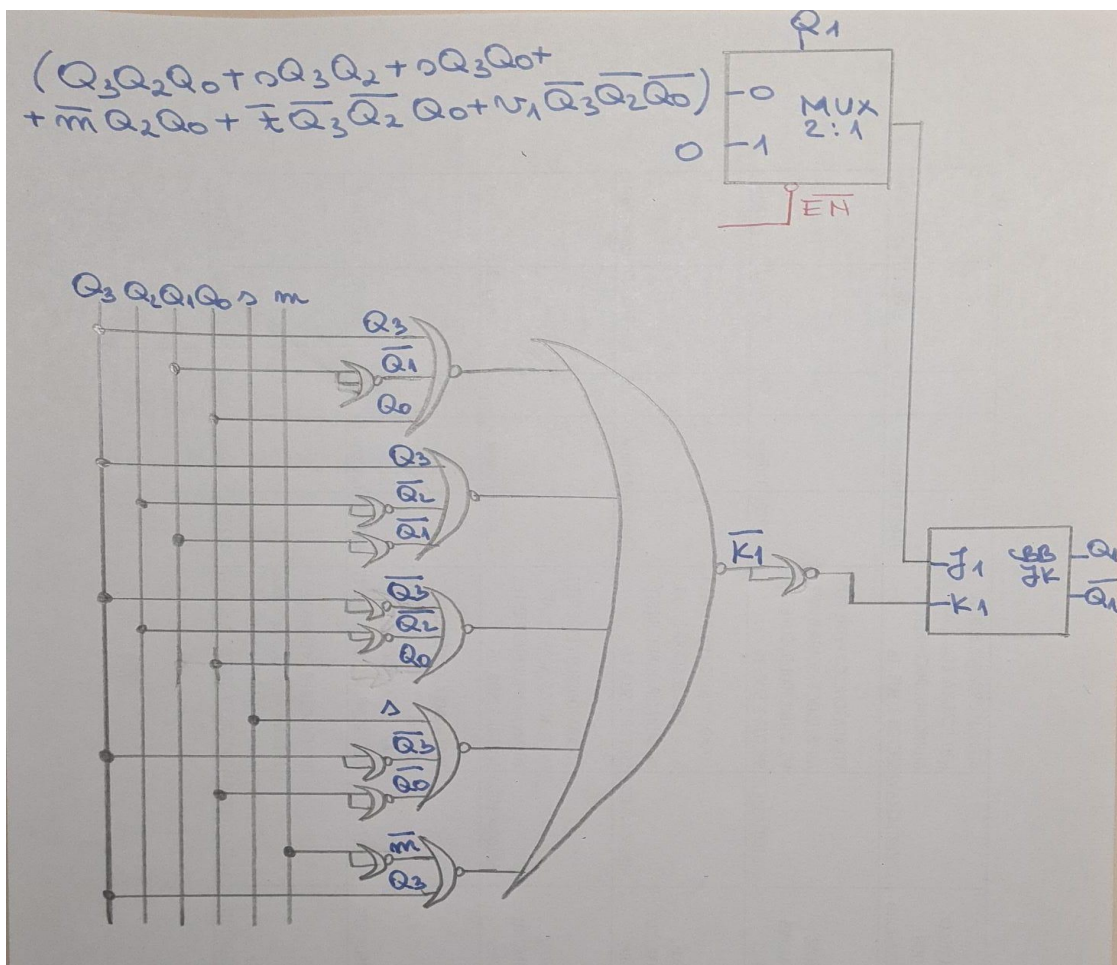 Q1
(Q3Q2Q0+sQ3Q2+sQ3Q0+
+m̅Q2Q0+t̅Q̅3̅Q̅2̅Q0+v1Q̅3̅Q̅2̅Q̅0̅)
0
MUX
2:1
0
1
E̅N̅
Q3 Q2 Q1 Q0 s m
Q3
Q̅1̅
Q0
Q3
Q̅2̅
Q̅1̅
Q̅3̅
Q̅2̅
Q0
s
Q̅3̅
Q̅0̅
m̅
Q3
K̅1̅
J1
BB
JK
K1
Q1
Q̅1̅